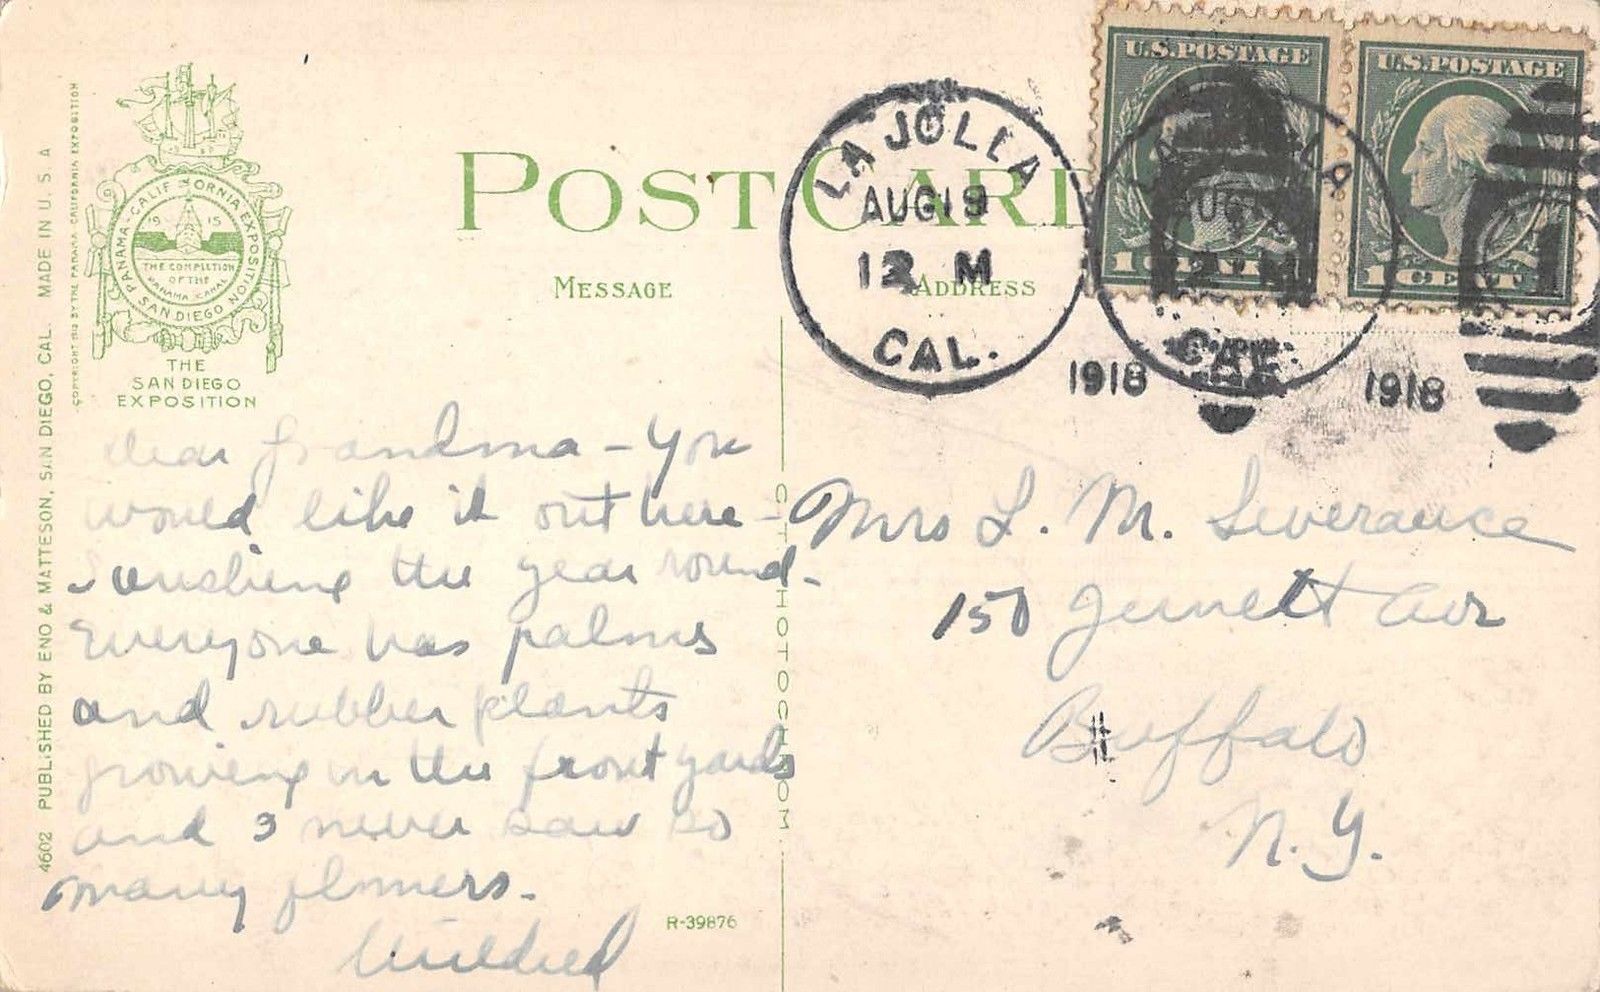 4602 PUBLISHED BY ENO & MATTESON, SAN DIEGO, CAL. MADE IN U. S. A
COPYRIGHT 1912 BY THE PANAMA-CALIFORNIA EXPOSITION
PANAMA-CALIFORNIA EXPOSITION
SAN DIEGO
1915
THE COMPLETION
OF THE
PANAMA CANAL
THE
SAN DIEGO
EXPOSITION
POST CARD
MESSAGE
ADDRESS
LA JOLLA
AUG 19
12 M
CAL.
1918
LA LA
AUG
M
CAL
1918
U.S. POSTAGE
1 CENT
U.S. POSTAGE
1 CENT 1
Dear Grandma - You
would like it out here -
Sunshine the year round -
Everyone has palms
and rubber plants
growing in the front yards
and I never saw so
many flowers.
Mildred
R-39876
PHOTOCHROM
Mrs L. M. Severance
150 Jewett Ave
Buffalo
N. Y.